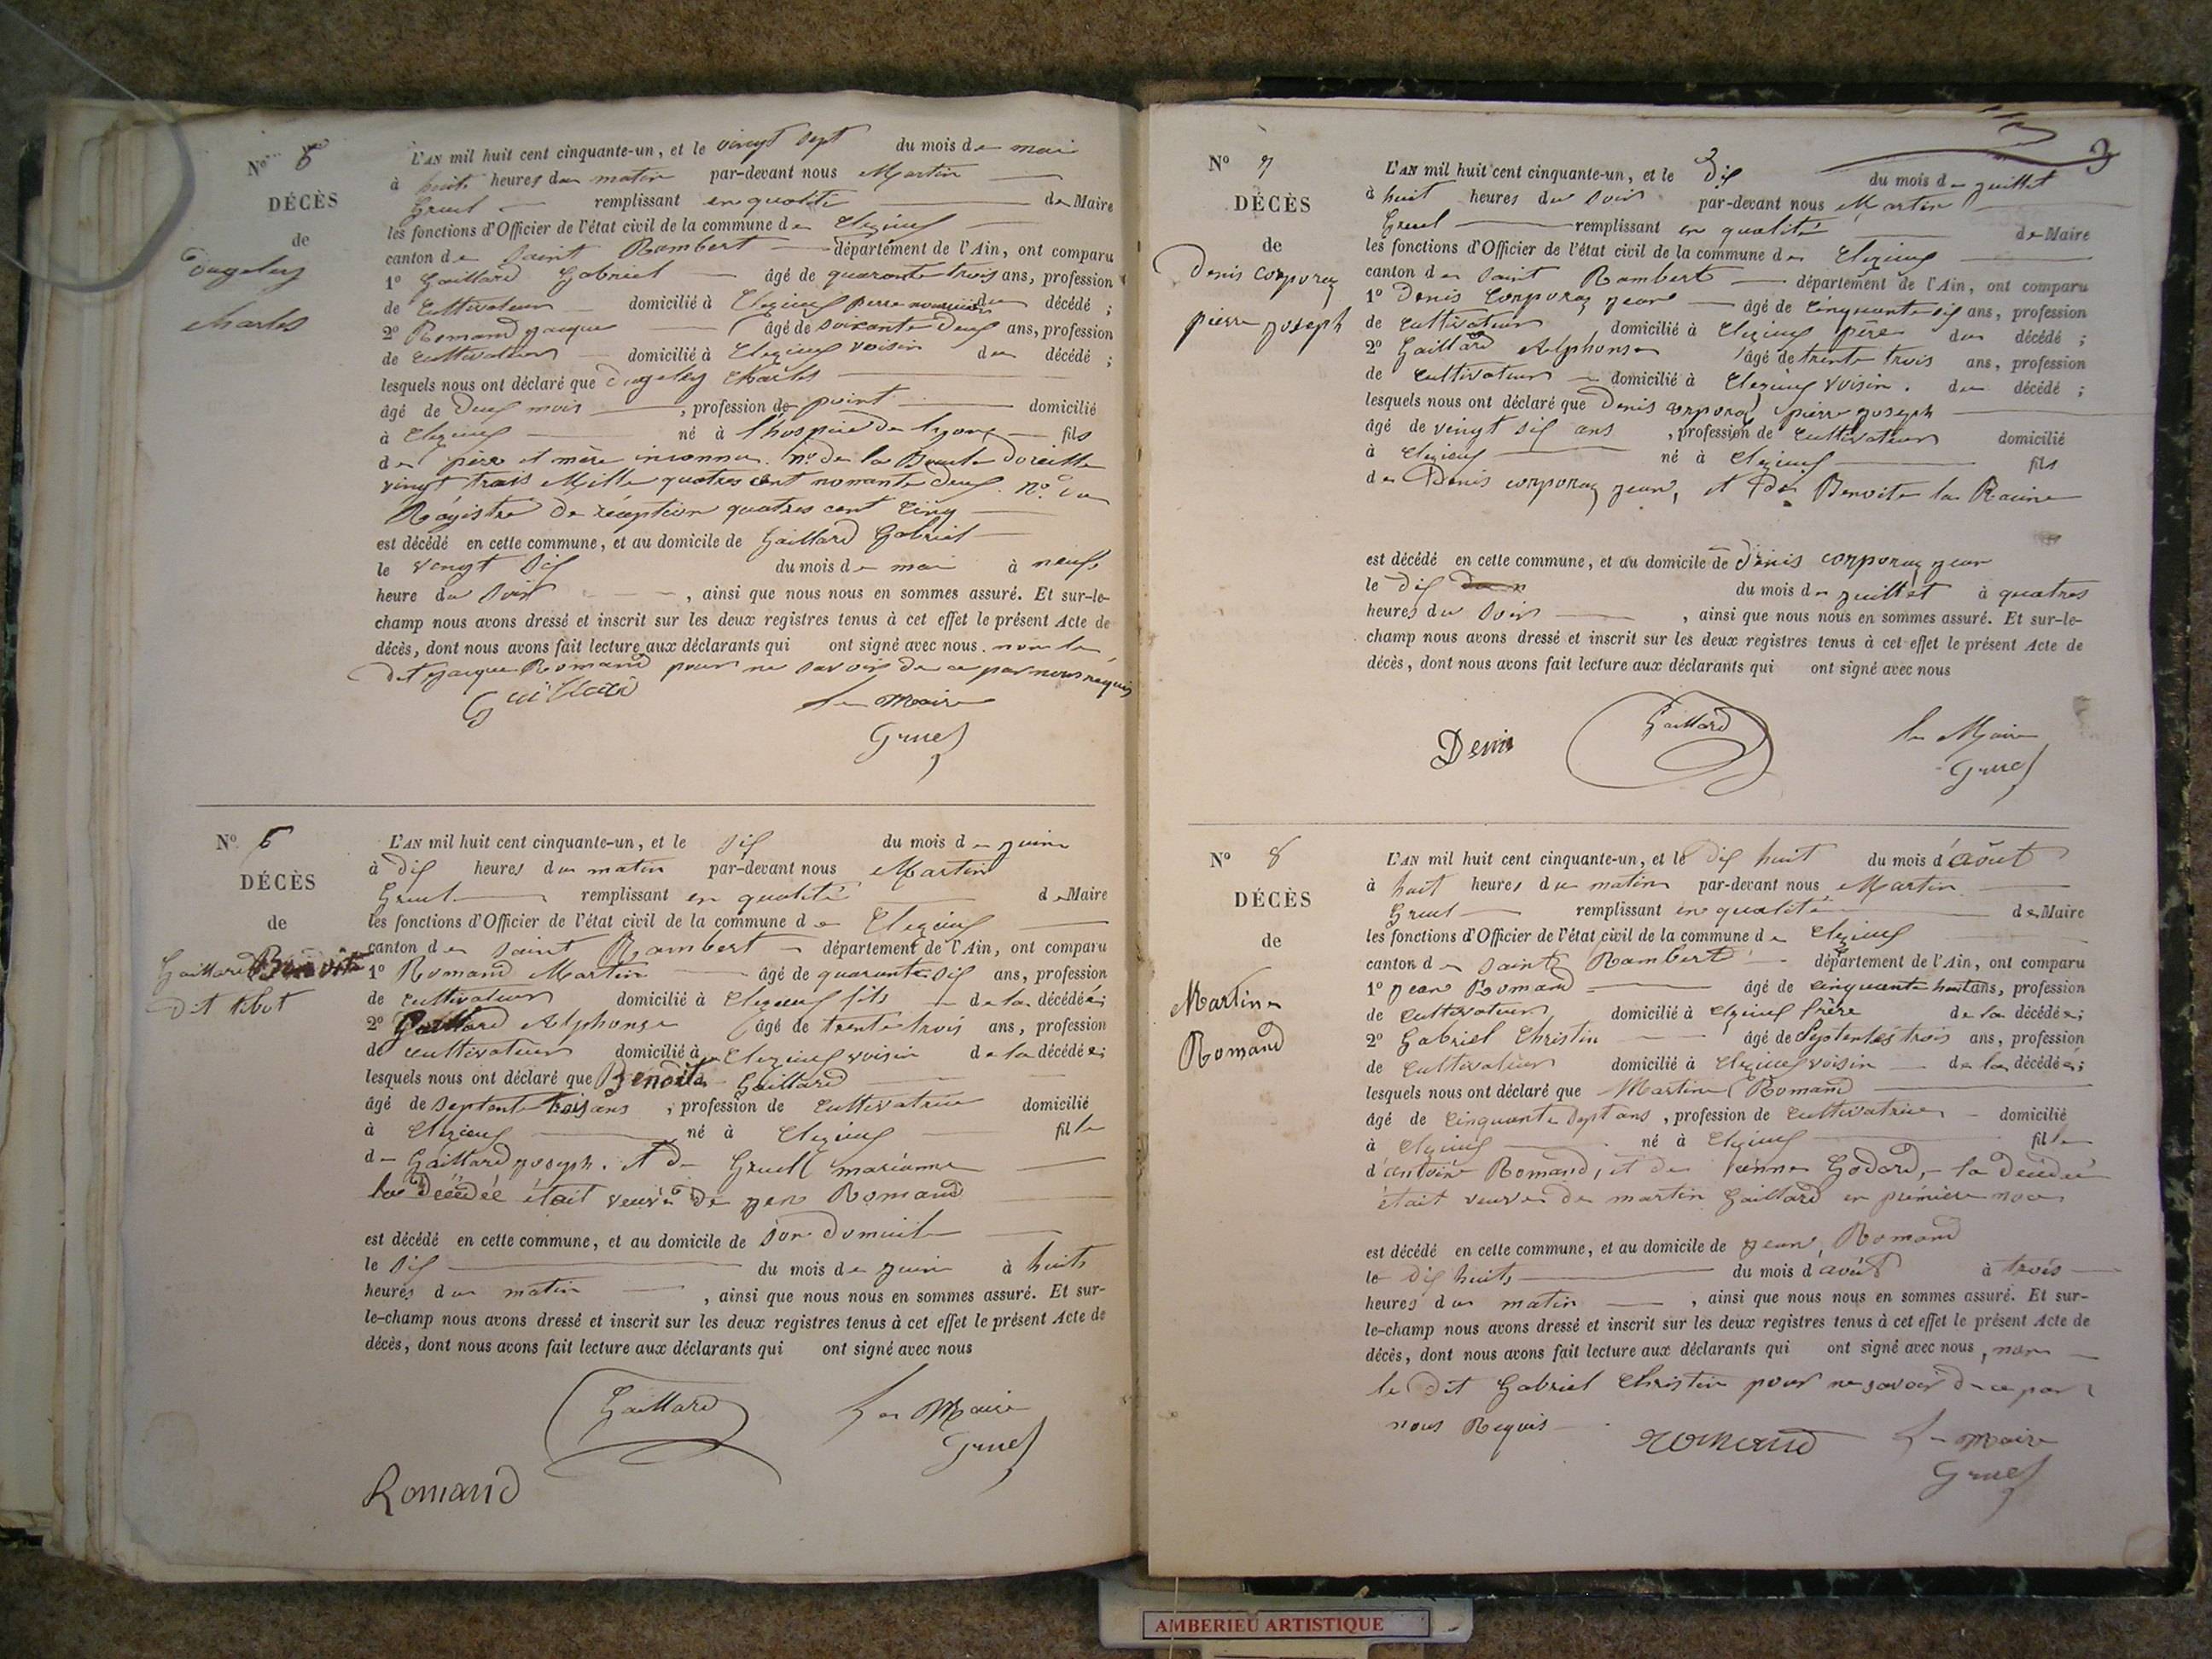 N° 5
DÉCÈS
de
Dugeley
charles
L'AN mil huit cent cinquante-un, et le vingt sept du mois de mai
à huit heures du matin par-devant nous Martin
Gruel remplissant en qualité de Maire
les fonctions d'Officier de l'état civil de la commune de Clezieux
canton de Saint Rambert département de l'Ain, ont comparu
1° Gaillard Gabriel âgé de quarante trois ans, profession
de Cultivateur domicilié à Clezieux perre nourricier du décédé ;
2° Romand jacque âgé de soixante Deux ans, profession
de Cultivateur domicilié à Clezieux voisin du décédé ;
lesquels nous ont déclaré que Dugeley Charles
âgé de Deux mois , profession de point domicilié
à Clezieux né à l'hospice de Lyon fils
de père et mère inconnu. n° De la Boucle Doreille
vingt trais Mille quatres cent nonante Deux. N° du
Régistre De réception quatres cent Cinq
est décédé en cette commune, et au domicile de Gaillard Gabriel
le vengt six du mois de mai à neufs
heure du soir , ainsi que nous nous en sommes assuré. Et sur-le-
champ nous avons dressé et inscrit sur les deux registres tenus à cet effet le présent Acte de
décès, dont nous avons fait lecture aux déclarants qui ont signé avec nous. non le
Dit jacque Romand pour ne savoir de ce par nous requis
Gaillard
Le Maire
Gruel
N° 6
DÉCÈS
de
Gaillard Benoite
Dit tibot
L'AN mil huit cent cinquante-un, et le Six du mois de juin
à Dix heures du matin par-devant nous Martin
Gruel remplissant en qualité de Maire
les fonctions d'Officier de l'état civil de la commune de Clezieux
canton de Saint Rambert département de l'Ain, ont comparu
1° Romand Martin âgé de quarante six ans, profession
de Cultivateur domicilié à Clezieux fils de la décédée;
2° Gaillard Alphonse âgé de trente trois ans, profession
de cultivateur domicilié à Clezieux voisin de la décédée;
lesquels nous ont déclaré que Benoite Gaillard
âgé de septente trois ans , profession de Cultivatrice domicilié
à Clezieux né à Clezieux fille
de Gaillard joseph. et de Gruell marianne
la Décédée était veuve De jean Romand
est décédé en cette commune, et au domicile de Son Domicile
le Six du mois de juin à huits
heures du matin , ainsi que nous nous en sommes assuré. Et sur-
le-champ nous avons dressé et inscrit sur les deux registres tenus à cet effet le présent Acte de
décès, dont nous avons fait lecture aux déclarants qui ont signé avec nous
Gaillard
Le Maire
Gruel
Romand
3
N° 7
DÉCÈS
de
Denis Corporay
pierre joseph
L'AN mil huit cent cinquante-un, et le Dix du mois de juillet
à huit heures du soir par-devant nous Martin
Gruel remplissant en qualité de Maire
les fonctions d'Officier de l'état civil de la commune de Clezieux
canton de Saint Rambert département de l'Ain, ont comparu
1° Denis Corporay jean âgé de Cinquante six ans, profession
de Cultivateur domicilié à Clezieux père du décédé ;
2° Gaillard Alphonse âgé de trente trois ans, profession
de Cultivateur domicilié à Clezieux voisin. du décédé ;
lesquels nous ont déclaré que Denis corporay pierre joseph
âgé de vengt six ans , profession de Cultivateur domicilié
à Clezieux né à Clezieux fils
de Denis corporay jean, et De Benoite la Racine
est décédé en cette commune, et au domicile de Denis corporay jean
le dix du mois de juillet à quatres
heures du soir , ainsi que nous nous en sommes assuré. Et sur-le-
champ nous avons dressé et inscrit sur les deux registres tenus à cet effet le présent Acte de
décès, dont nous avons fait lecture aux déclarants qui ont signé avec nous
Denis
Gaillard
le Maire
Gruel
N° 8
DÉCÈS
de
Martine
Romand
L'AN mil huit cent cinquante-un, et le Dix huit du mois d'août
à huit heures du matin par-devant nous Martin
Gruel remplissant en qualité de Maire
les fonctions d'Officier de l'état civil de la commune de Clezieux
canton de Saint Rambert département de l'Ain, ont comparu
1° jean Romand âgé de cinquante huit ans, profession
de Cultivateur domicilié à Clezieux frère de la décédée;
2° Gabriel Christin âgé de Septentes trois ans, profession
de Cultivateur domicilié à Clezieux voisin de la décédée;
lesquels nous ont déclaré que Martine Romand
âgé de Cinquante Sept ans , profession de Cultivatrice domicilié
à Clezieux né à Clezieux fille
d'antoine Romand, et de jeanne Godard, la Décédée
était veuve de martin Gaillard en première noce
est décédé en cette commune, et au domicile de jean Romand
le dix huits du mois d'août à trois
heures du matin , ainsi que nous nous en sommes assuré. Et sur-
le-champ nous avons dressé et inscrit sur les deux registres tenus à cet effet le présent Acte de
décès, dont nous avons fait lecture aux déclarants qui ont signé avec nous, non
le Dit Gabriel Christin pour ne savoir de ce par
nous Requis
romand
Le Maire
Gruel
AMBERIEU ARTISTIQUE